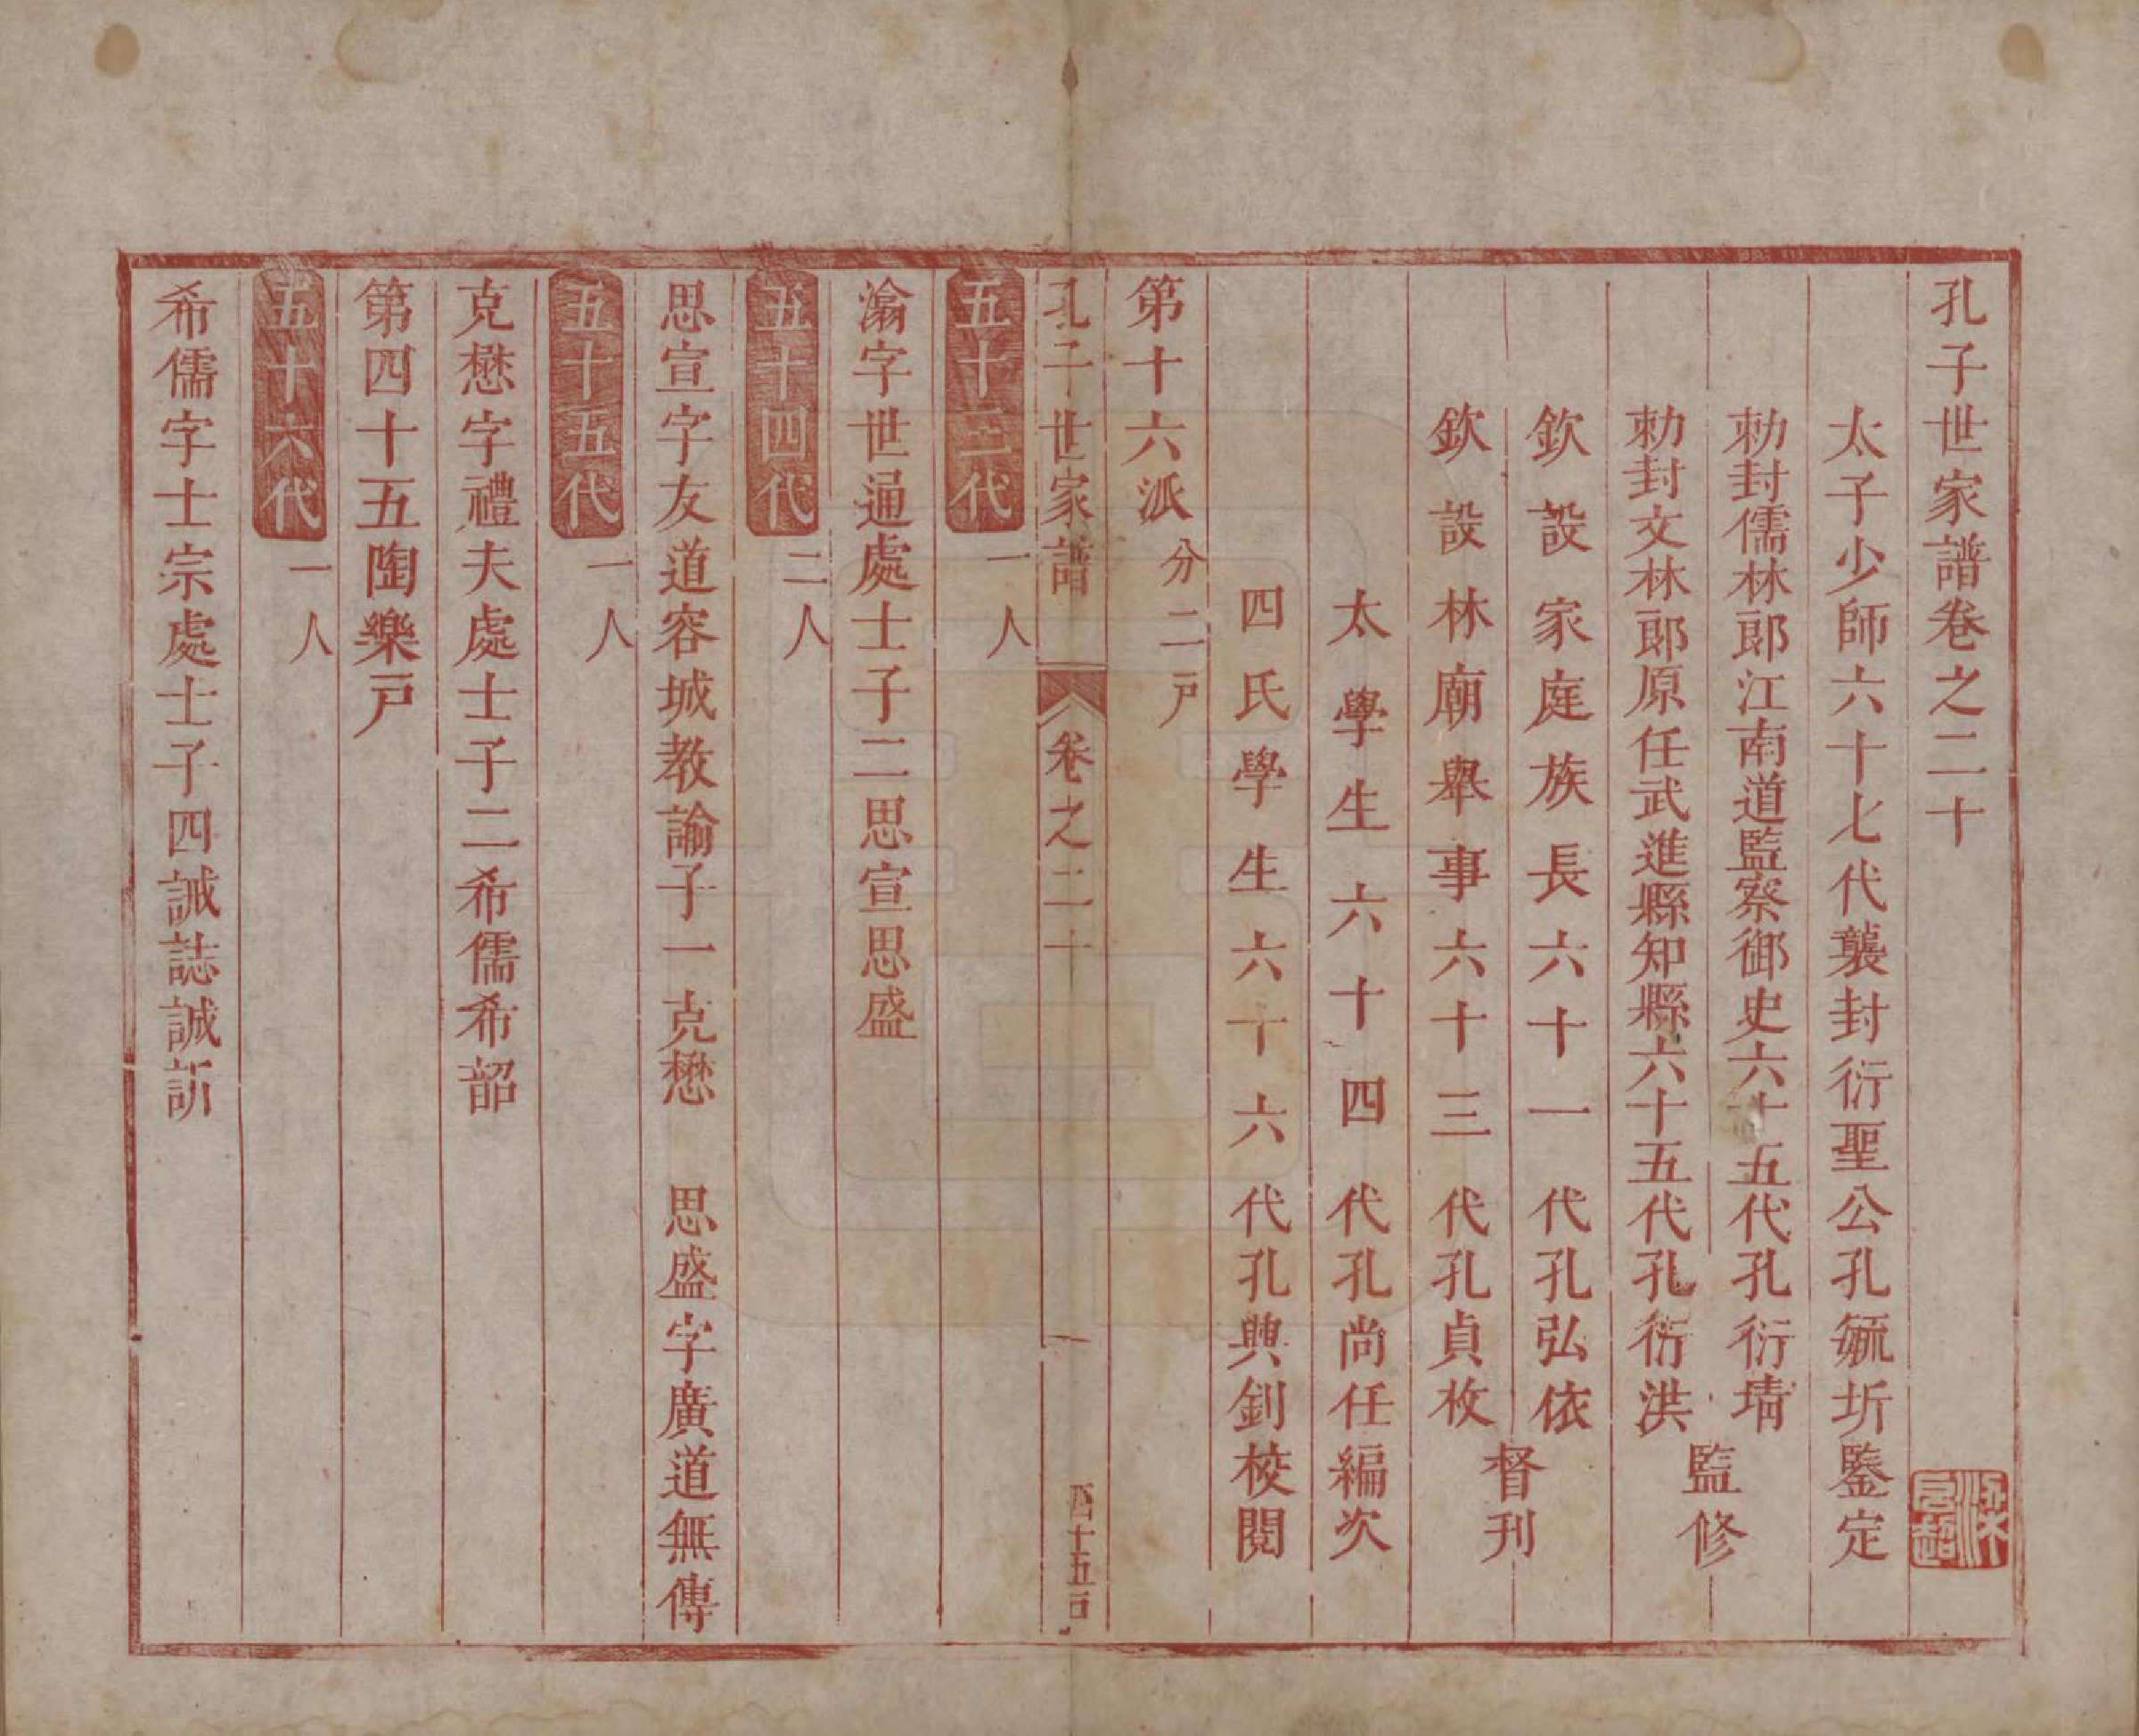 孔子世家譜卷之二十
太子少師六十七代襲封衍聖公孔毓圻鑒定
勅封儒林郎江南道監察御史六十五代孔衍堉
勅封文林郎原任武進縣知縣六十五代孔衍洪
監修
欽設家庭族長六十一代孔弘依
欽設林廟舉事六十三代孔貞枚
督刊
太學生六十四代孔尚任編次
四氏學生六十六代孔興釗校閱
第十六派分二戶
孔子世家譜 卷之二十 一 四十五戶
五十三代一人
瀹字世通處士子二思宣思盛
五十四代二人
思宣字友道容城教諭子一克懋 思盛字廣道無傳
五十五代一人
克懋字禮夫處士子二希儒希韶
第四十五陶樂戶
五十六代一人
希儒字士宗處士子四諴誌誠訢